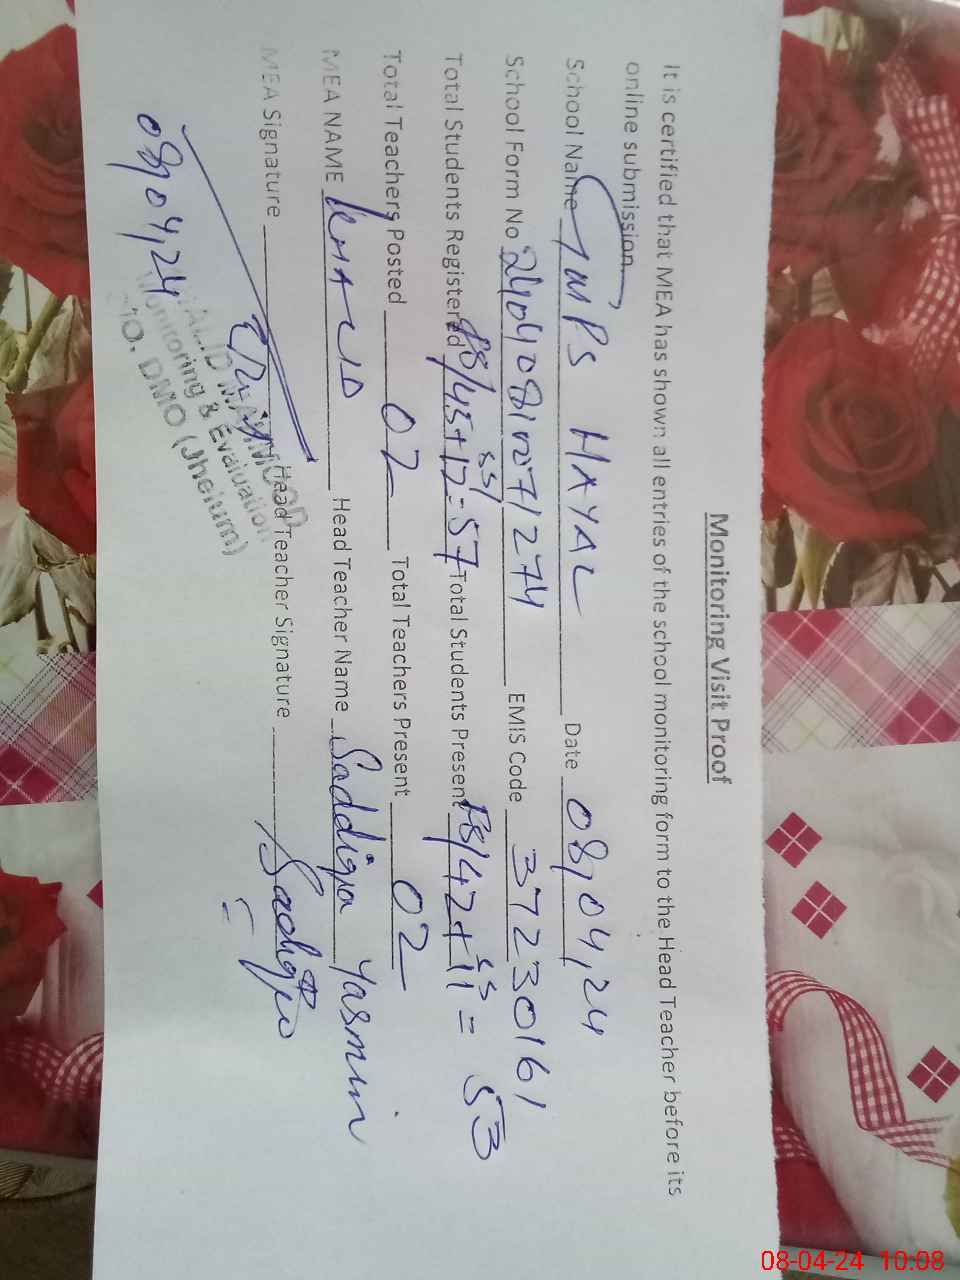 Monitoring Visit Proof
It is certified that MEA has shown all entries of the school monitoring form to the Head Teacher before its
online submission.
School Name GMPS HAYAL Date 08,04,24
School Form No 2404081271274 EMIS Code 37230161
Total Students Registered 45+12=57 Total Students Present 42+11=53
Total Teachers Posted 02 Total Teachers Present 02
MEA NAME KHALID Head Teacher Name Saddiqa Yasmin
MEA Signature Head Teacher Signature Sadiqa
08,04,24
KHALID MAHMOOD
Monitoring & Evaluation
O/O. DMO (Jhelum)
08-04-24 10:08